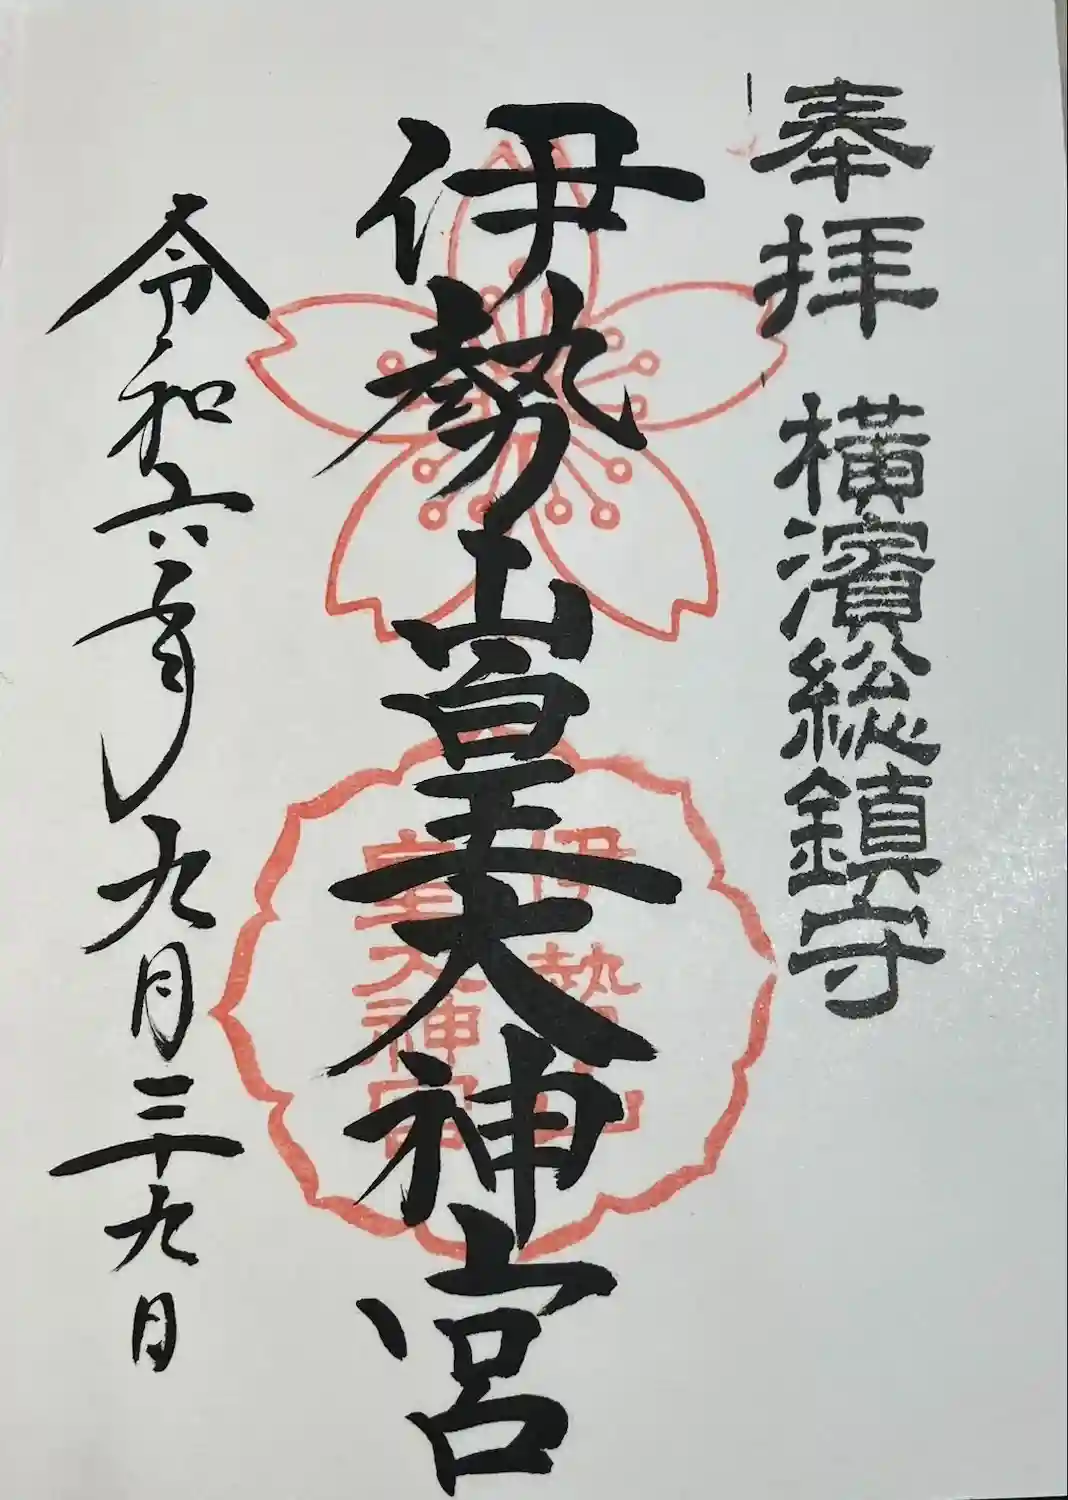 奉拝 横濱総鎮守
伊勢山皇大神宮
伊勢山
皇大神宮
令和六年九月二十九日